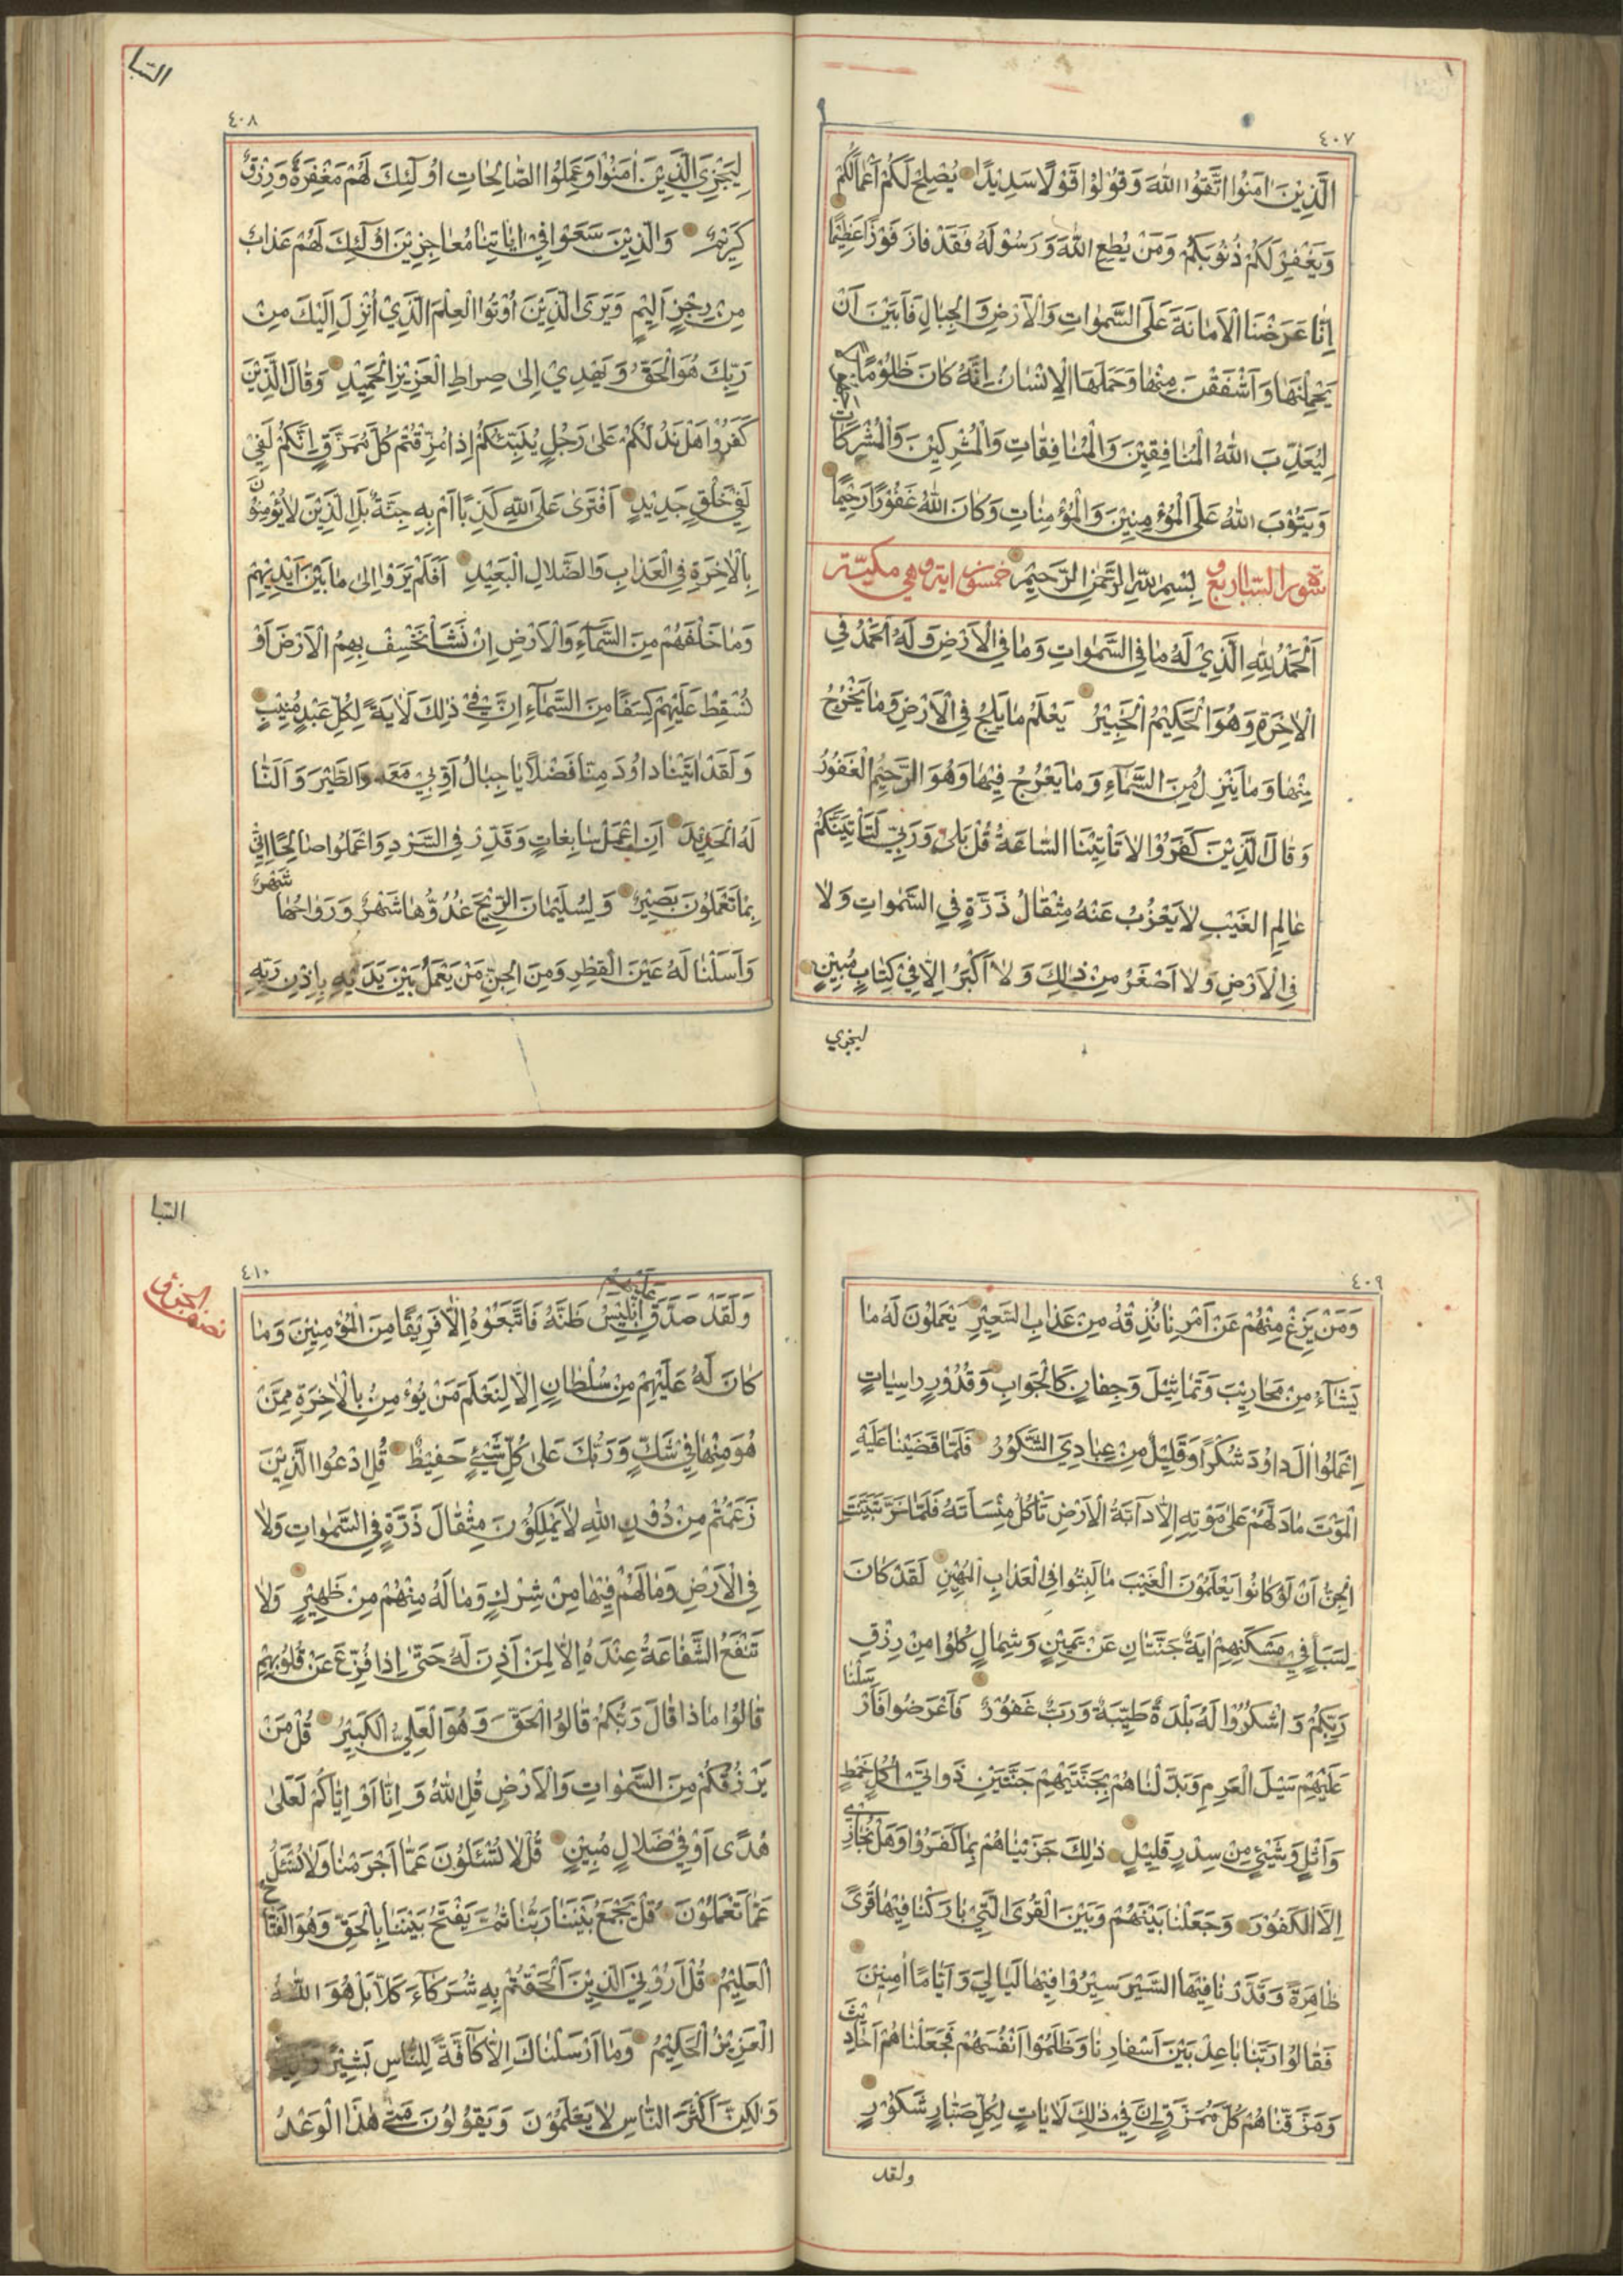 ٤٠٧
الَّذِيْنَ اٰمَنُوْا اتَّقَوُا اللّٰهَ وَقُوْلُوْا قَوْلًا سَدِيْدًا يُصْلِحْ لَكُمْ اَعْمَالَكُمْ
وَيَغْفِرْ لَكُمْ ذُنُوْبَكُمْ وَمَنْ يُطِعِ اللّٰهَ وَرَسُوْلَهُ فَقَدْ فَازَ فَوْزًا عَظِيْمًا
اِنَّا عَرَضْنَا الْاَمَانَةَ عَلَى السَّمٰوَاتِ وَالْاَرْضِ وَالْجِبَالِ فَاَبَيْنَ اَنْ
يَحْمِلْنَهَا وَاَشْفَقْنَ مِنْهَا وَحَمَلَهَا الْاِنْسَانُ اِنَّهُ كَانَ ظَلُوْمًا
لِيُعَذِّبَ اللّٰهُ الْمُنَافِقِيْنَ وَالْمُنَافِقَاتِ وَالْمُشْرِكِيْنَ وَالْمُشْرِكَاتِ
وَيَتُوْبَ اللّٰهُ عَلَى الْمُؤْمِنِيْنَ وَالْمُؤْمِنَاتِ وَكَانَ اللّٰهُ غَفُوْرًا رَحِيْمًا
سورة السبا اربع و بِسْمِ اللّٰهِ الرَّحْمٰنِ الرَّحِيْمِ خمسون اية و هي مكيّة
اَلْحَمْدُ لِلّٰهِ الَّذِيْ لَهُ مَا فِي السَّمٰوَاتِ وَمَا فِي الْاَرْضِ وَلَهُ الْحَمْدُ فِي
الْاٰخِرَةِ وَهُوَ الْحَكِيْمُ الْخَبِيْرُ يَعْلَمُ مَا يَلِجُ فِي الْاَرْضِ وَمَا يَخْرُجُ
مِنْهَا وَمَا يَنْزِلُ مِنَ السَّمَآءِ وَمَا يَعْرُجُ فِيْهَا وَهُوَ الرَّحِيْمُ الْغَفُوْرُ
وَقَالَ الَّذِيْنَ كَفَرُوْا لَا تَأْتِيْنَا السَّاعَةُ قُلْ بَلٰى وَرَبِّيْ لَتَأْتِيَنَّكُمْ
عَالِمِ الْغَيْبِ لَا يَعْزُبُ عَنْهُ مِثْقَالُ ذَرَّةٍ فِي السَّمٰوَاتِ وَلَا
فِي الْاَرْضِ وَلَا اَصْغَرُ مِنْ ذٰلِكَ وَلَا اَكْبَرُ اِلَّا فِيْ كِتَابٍ مُبِيْنٍ
ليجزي
السبا
٤٠٨
لِيَجْزِيَ الَّذِيْنَ اٰمَنُوْا وَعَمِلُوا الصَّالِحَاتِ اُولٰٓئِكَ لَهُمْ مَغْفِرَةٌ وَرِزْقٌ
كَرِيْمٌ وَالَّذِيْنَ سَعَوْا فِيْ اٰيَاتِنَا مُعَاجِزِيْنَ اُولٰٓئِكَ لَهُمْ عَذَابٌ
مِنْ رِجْزٍ اَلِيْمٍ وَيَرَى الَّذِيْنَ اُوْتُوا الْعِلْمَ الَّذِيْ اُنْزِلَ اِلَيْكَ مِنْ
رَبِّكَ هُوَ الْحَقَّ وَيَهْدِيْ اِلٰى صِرَاطِ الْعَزِيْزِ الْحَمِيْدِ وَقَالَ الَّذِيْنَ
كَفَرُوْا هَلْ نَدُلُّكُمْ عَلٰى رَجُلٍ يُنَبِّئُكُمْ اِذَا مُزِّقْتُمْ كُلَّ مُمَزَّقٍ اِنَّكُمْ لَفِيْ
لَفِيْ خَلْقٍ جَدِيْدٍ اَفْتَرٰى عَلَى اللّٰهِ كَذِبًا اَمْ بِهِ جِنَّةٌ بَلِ الَّذِيْنَ لَا يُؤْمِنُوْنَ
بِالْاٰخِرَةِ فِي الْعَذَابِ وَالضَّلَالِ الْبَعِيْدِ اَفَلَمْ يَرَوْا اِلٰى مَا بَيْنَ اَيْدِيْهِمْ
وَمَا خَلْفَهُمْ مِنَ السَّمَآءِ وَالْاَرْضِ اِنْ نَشَأْ نَخْسِفْ بِهِمُ الْاَرْضَ اَوْ
نُسْقِطْ عَلَيْهِمْ كِسَفًا مِنَ السَّمَآءِ اِنَّ فِيْ ذٰلِكَ لَاٰيَةً لِكُلِّ عَبْدٍ مُنِيْبٍ
وَلَقَدْ اٰتَيْنَا دَاوُدَ مِنَّا فَضْلًا يَا جِبَالُ اَوِّبِيْ مَعَهُ وَالطَّيْرَ وَاَلَنَّا
لَهُ الْحَدِيْدَ اَنِ اعْمَلْ سَابِغَاتٍ وَقَدِّرْ فِي السَّرْدِ وَاعْمَلُوا صَالِحًا اِنِّيْ
بِمَا تَعْمَلُوْنَ بَصِيْرٌ وَلِسُلَيْمَانَ الرِّيْحَ غُدُوُّهَا شَهْرٌ وَرَوَاحُهَا شَهْرٌ
وَاَسَلْنَا لَهُ عَيْنَ الْقِطْرِ وَمِنَ الْجِنِّ مَنْ يَعْمَلُ بَيْنَ يَدَيْهِ بِاِذْنِ رَبِّهِ
٤٠٩
وَمَنْ يَزِغْ مِنْهُمْ عَنْ اَمْرِنَا نُذِقْهُ مِنْ عَذَابِ السَّعِيْرِ يَعْمَلُوْنَ لَهُ مَا
يَشَآءُ مِنْ مَحَارِيْبَ وَتَمَاثِيْلَ وَجِفَانٍ كَالْجَوَابِ وَقُدُوْرٍ رَاسِيَاتٍ
اِعْمَلُوْا اٰلَ دَاوُدَ شُكْرًا وَقَلِيْلٌ مِنْ عِبَادِيَ الشَّكُوْرُ فَلَمَّا قَضَيْنَا عَلَيْهِ
الْمَوْتَ مَا دَلَّهُمْ عَلٰى مَوْتِهِ اِلَّا دَآبَّةُ الْاَرْضِ تَأْكُلُ مِنْسَاَتَهُ فَلَمَّا خَرَّ تَبَيَّنَتِ
الْجِنُّ اَنْ لَوْ كَانُوْا يَعْلَمُوْنَ الْغَيْبَ مَا لَبِثُوْا فِي الْعَذَابِ الْمُهِيْنِ لَقَدْ كَانَ
لِسَبَأٍ فِيْ مَسْكَنِهِمْ اٰيَةٌ جَنَّتَانِ عَنْ يَمِيْنٍ وَشِمَالٍ كُلُوْا مِنْ رِزْقِ
رَبِّكُمْ وَاشْكُرُوْا لَهُ بَلْدَةٌ طَيِّبَةٌ وَرَبٌّ غَفُوْرٌ فَاَعْرَضُوا فَاَرْسَلْنَا
عَلَيْهِمْ سَيْلَ الْعَرِمِ وَبَدَّلْنَاهُمْ بِجَنَّتَيْهِمْ جَنَّتَيْنِ ذَوَاتَيْ اُكُلٍ خَمْطٍ
وَاَثْلٍ وَشَيْئٍ مِنْ سِدْرٍ قَلِيْلٍ ذٰلِكَ جَزَيْنَاهُمْ بِمَا كَفَرُوْا وَهَلْ نُجَازِيْ
اِلَّا الْكَفُوْرَ وَجَعَلْنَا بَيْنَهُمْ وَبَيْنَ الْقُرَى الَّتِيْ بَارَكْنَا فِيْهَا قُرًى
ظَاهِرَةً وَقَدَّرْنَا فِيْهَا السَّيْرَ سِيْرُوْا فِيْهَا لَيَالِيَ وَاَيَّامًا اٰمِنِيْنَ
فَقَالُوْا رَبَّنَا بَاعِدْ بَيْنَ اَسْفَارِنَا وَظَلَمُوْا اَنْفُسَهُمْ فَجَعَلْنَاهُمْ اَحَادِيْثَ
وَمَزَّقْنَاهُمْ كُلَّ مُمَزَّقٍ اِنَّ فِيْ ذٰلِكَ لَاٰيَاتٍ لِكُلِّ صَبَّارٍ شَكُوْرٍ
ولقد
السبا
نصف الجزؤ
٤١٠
وَلَقَدْ صَدَّقَ عَلَيْهِمْ اِبْلِيْسُ ظَنَّهُ فَاتَّبَعُوْهُ اِلَّا فَرِيْقًا مِنَ الْمُؤْمِنِيْنَ وَمَا
كَانَ لَهُ عَلَيْهِمْ مِنْ سُلْطَانٍ اِلَّا لِنَعْلَمَ مَنْ يُؤْمِنُ بِالْاٰخِرَةِ مِمَّنْ
هُوَ مِنْهَا فِيْ شَكٍّ وَرَبُّكَ عَلٰى كُلِّ شَيْئٍ حَفِيْظٌ قُلِ ادْعُوا الَّذِيْنَ
زَعَمْتُمْ مِنْ دُوْنِ اللّٰهِ لَا يَمْلِكُوْنَ مِثْقَالَ ذَرَّةٍ فِي السَّمٰوَاتِ وَلَا
فِي الْاَرْضِ وَمَا لَهُمْ فِيْهَا مِنْ شِرْكٍ وَمَا لَهُ مِنْهُمْ مِنْ ظَهِيْرٍ وَلَا
تَنْفَعُ الشَّفَاعَةُ عِنْدَهُ اِلَّا لِمَنْ اَذِنَ لَهُ حَتّٰى اِذَا فُزِّعَ عَنْ قُلُوْبِهِمْ
قَالُوْا مَاذَا قَالَ رَبُّكُمْ قَالُوا الْحَقَّ وَهُوَ الْعَلِيُّ الْكَبِيْرُ قُلْ مَنْ
يَرْزُقُكُمْ مِنَ السَّمٰوَاتِ وَالْاَرْضِ قُلِ اللّٰهُ وَاِنَّا اَوْ اِيَّاكُمْ لَعَلٰى
هُدًى اَوْ فِيْ ضَلَالٍ مُبِيْنٍ قُلْ لَا تُسْئَلُوْنَ عَمَّا اَجْرَمْنَا وَلَا نُسْئَلُ
عَمَّا تَعْمَلُوْنَ قُلْ يَجْمَعُ بَيْنَنَا رَبُّنَا ثُمَّ يَفْتَحُ بَيْنَنَا بِالْحَقِّ وَهُوَ الْفَتَّاحُ
الْعَلِيْمُ قُلْ اَرُوْنِيَ الَّذِيْنَ اَلْحَقْتُمْ بِهِ شُرَكَآءَ كَلَّا بَلْ هُوَ اللّٰهُ
الْعَزِيْزُ الْحَكِيْمُ وَمَا اَرْسَلْنَاكَ اِلَّا كَآفَّةً لِلنَّاسِ بَشِيْرً
وَلٰكِنَّ اَكْثَرَ النَّاسِ لَا يَعْلَمُوْنَ وَيَقُوْلُوْنَ مَتٰى هٰذَا الْوَعْدُ